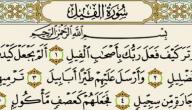 سُورَةُ الفِيلِ
بِسْمِ اللَّهِ الرَّحْمَٰنِ الرَّحِيمِ
أَلَمْ تَرَ كَيْفَ فَعَلَ رَبُّكَ بِأَصْحَابِ الْفِيلِ ١ أَلَمْ يَجْعَلْ كَيْدَهُمْ
تَضْلِيلٍ ٢ وَأَرْسَلَ عَلَيْهِمْ طَيْرًا أَبَابِيلَ ٣ تَرْمِيهِمْ
سِجِّيلٍ ٤ فَجَعَلَهُمْ كَعَصْفٍ مَأْكُولٍ